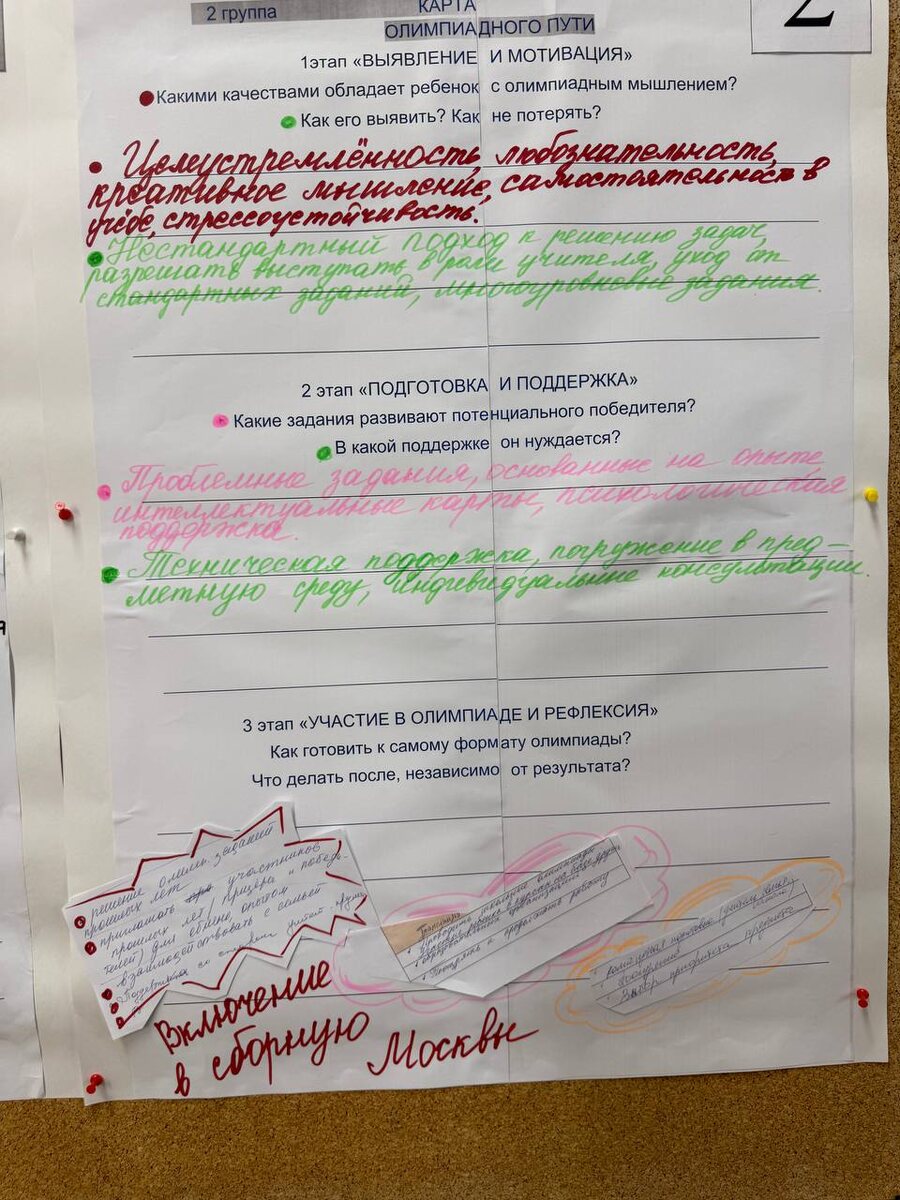 2 группа
КАРТА
ОЛИМПИАДНОГО ПУТИ
2
1этап «ВЫЯВЛЕНИЕ И МОТИВАЦИЯ»
Какими качествами обладает ребенок с олимпиадным мышлением?
Как его выявить? Как не потерять?
Целеустремлённость, любознательность,
креативное мышление, самостоятельность в
учёбе, стрессоустойчивость.
Нестандартный подход к решению задач,
разрешать выступать в роли учителя, уход от
стандартных заданий, многоуровневые задания.
2 этап «ПОДГОТОВКА И ПОДДЕРЖКА»
Какие задания развивают потенциального победителя?
В какой поддержке он нуждается?
Проблемные задания, основанные на опыте,
интеллектуальные карты, психологическая
поддержка.
Техническая поддержка, погружение в пред-
метную среду, индивидуальные консультации.
3 этап «УЧАСТИЕ В ОЛИМПИАДЕ И РЕФЛЕКСИЯ»
Как готовить к самому формату олимпиады?
Что делать после, независимо от результата?
решение олимп. заданий
прошлых лет
приглашать участников
прошлых лет (призёра и победи-
телей) для обмена опытом
взаимодействовать с семьёй
Поддержка со стороны
Включение
в сборную Москвы